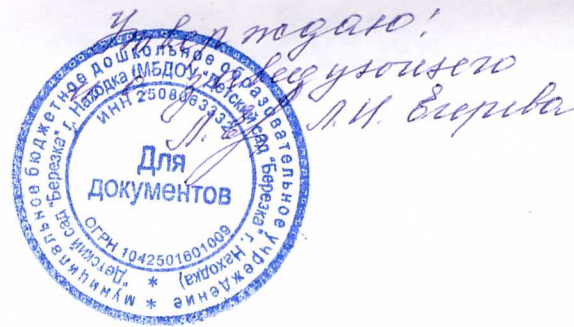 Утверждаю!
заведующего
Л.И. Егерева
муниципальное бюджетное дошкольное образовательное учреждение
"Детский сад "Березка" г. Находка (МБДОУ "Детский сад "Березка" г. Находка)
ИНН
ОГРН 1042501601009
Для
документов